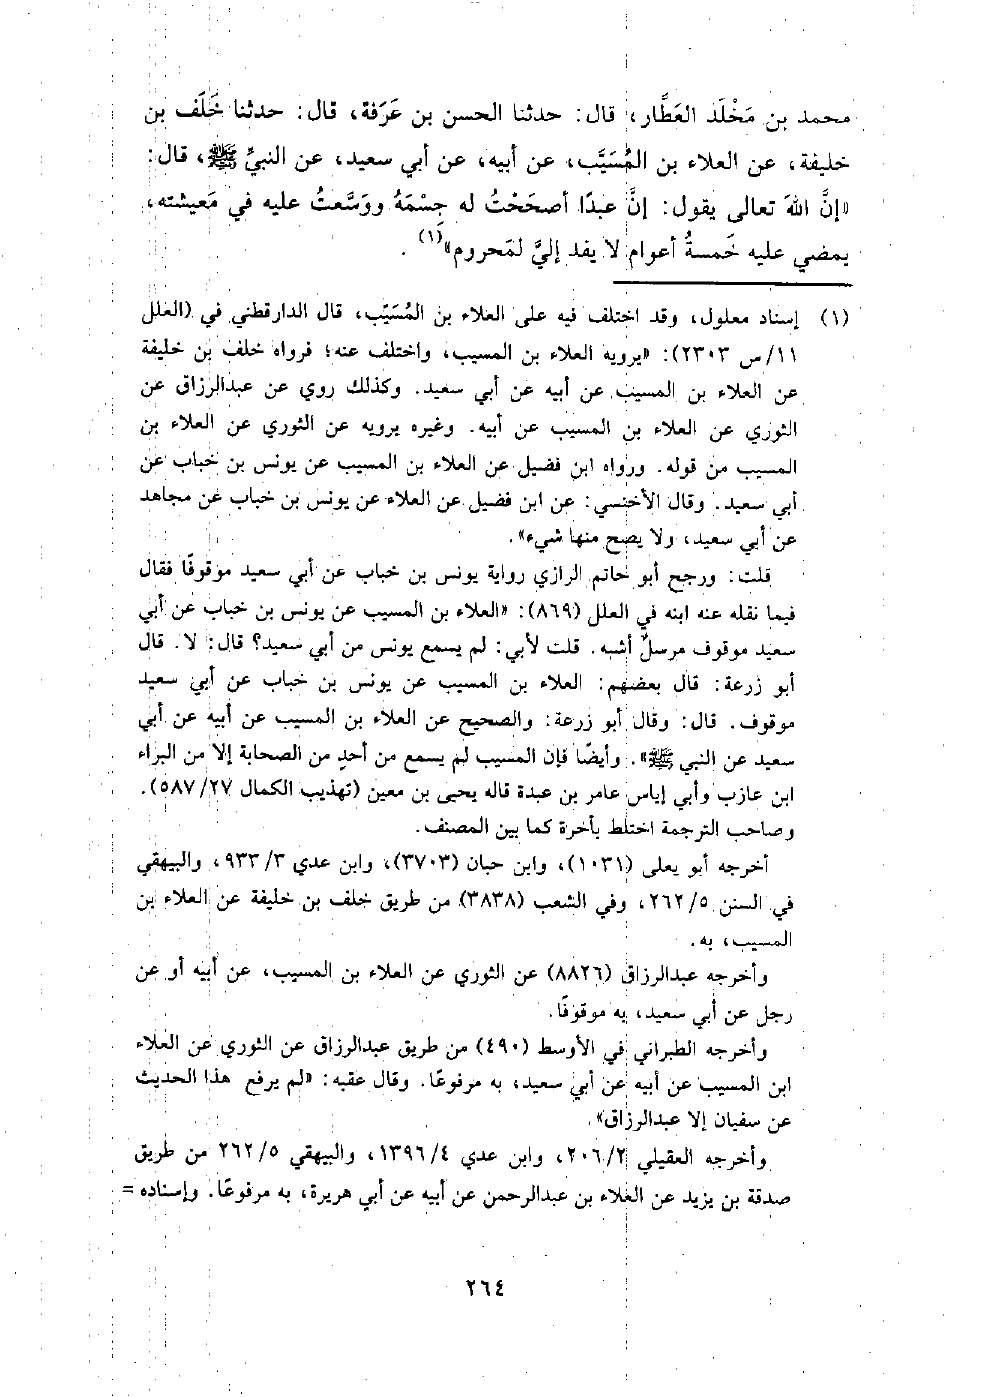 محمد بن مَخْلَد العَطَّار، قال: حدثنا الحسن بن عَرَفة، قال: حدثنا خَلَف بن
خليفة، عن العلاء بن المُسَيَّب، عن أبيه، عن أبي سعيد، عن النبيِّ ﷺ، قال:
«إنَّ اللهَ تعالى يقول: إنَّ عبدًا أصحَحْتُ له جِسْمَهُ ووَسَّعتُ عليه في مَعيشته،
يمضي عليه خَمسةُ أعوام لا يفد إليَّ لمَحروم»(١).
(١) إسناد معلول، وقد اختلف فيه على العلاء بن المُسَيّب، قال الدارقطني في (العلل
١١/ س ٢٣٠٣): «يرويه العلاء بن المسيب، واختلف عنه؛ فرواه خلف بن خليفة
عن العلاء بن المسيب عن أبيه عن أبي سعيد. وكذلك روي عن عبدالرزاق عن
الثوري عن العلاء بن المسيب عن أبيه. وغيره يرويه عن الثوري عن العلاء بن
المسيب من قوله. ورواه ابن فضيل عن العلاء بن المسيب عن يونس بن خباب عن
أبي سعيد. وقال الأخنسي: عن ابن فضيل عن العلاء عن يونس بن خباب عن مجاهد
عن أبي سعيد، ولا يصح منها شيء».
قلت: ورجح أبو حاتم الرازي رواية يونس بن خباب عن أبي سعيد موقوفًا فقال
فيما نقله عنه ابنه في العلل (٨٦٩): «العلاء بن المسيب عن يونس بن خباب عن أبي
سعيد موقوف مرسلٌ أشبه. قلت لأبي: لم يسمع يونس من أبي سعيد؟ قال: لا. قال
أبو زرعة: قال بعضهم: العلاء بن المسيب عن يونس بن خباب عن أبي سعيد
موقوف. قال: وقال أبو زرعة: والصحيح عن العلاء بن المسيب عن أبيه عن أبي
سعيد عن النبي ﷺ». وأيضًا فإن المسيب لم يسمع من أحدٍ من الصحابة إلا من البراء
ابن عازب وأبي إياس عامر بن عبدة قاله يحيى بن معين (تهذيب الكمال ٢٧/ ٥٨٧).
وصاحب الترجمة اختلط بأخرة كما بين المصنف.
أخرجه أبو يعلى (١٠٣١)، وابن حبان (٣٧٠٣)، وابن عدي ٣/ ٩٣٣، والبيهقي
في السنن ٥/ ٢٦٢، وفي الشعب (٣٨٣٨) من طريق خلف بن خليفة عن العلاء بن
المسيب، به.
وأخرجه عبدالرزاق (٨٨٢٦) عن الثوري عن العلاء بن المسيب، عن أبيه أو عن
رجل عن أبي سعيد، به موقوفًا.
وأخرجه الطبراني في الأوسط (٤٩٠) من طريق عبدالرزاق عن الثوري عن العلاء
ابن المسيب عن أبيه عن أبي سعيد، به مرفوعًا. وقال عقبه: «لم يرفع هذا الحديث
عن سفيان إلا عبدالرزاق».
وأخرجه العقيلي ٢/ ٢٠٦، وابن عدي ٤/ ١٣٩٦، والبيهقي ٥/ ٢٦٢ من طريق
صدقة بن يزيد عن العلاء بن عبدالرحمن عن أبيه عن أبي هريرة، به مرفوعًا. وإسناده =
٢٦٤